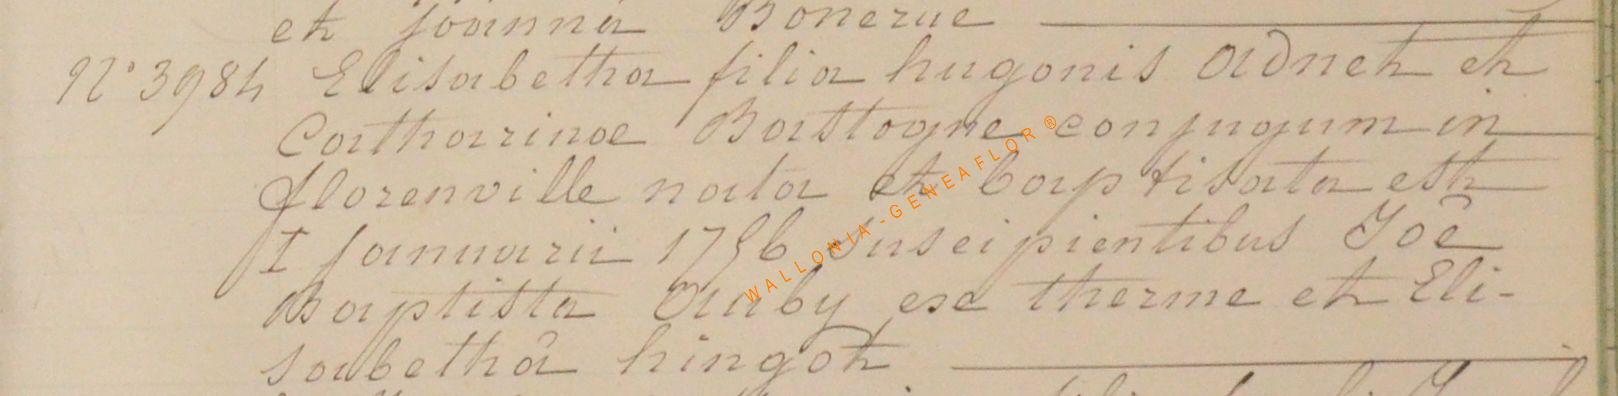 et joanna Bonerue
N° 3984 Elisabetha filia hugonis Adnet et
Catharinae Bastogne conjugum in
florenville nata et baptisata est
I januarii 1756 suscipientibus Joê
Baptista Auby ex therme et Eli-
sabethâ hingot
WALLONIA-GENEAFLOR®